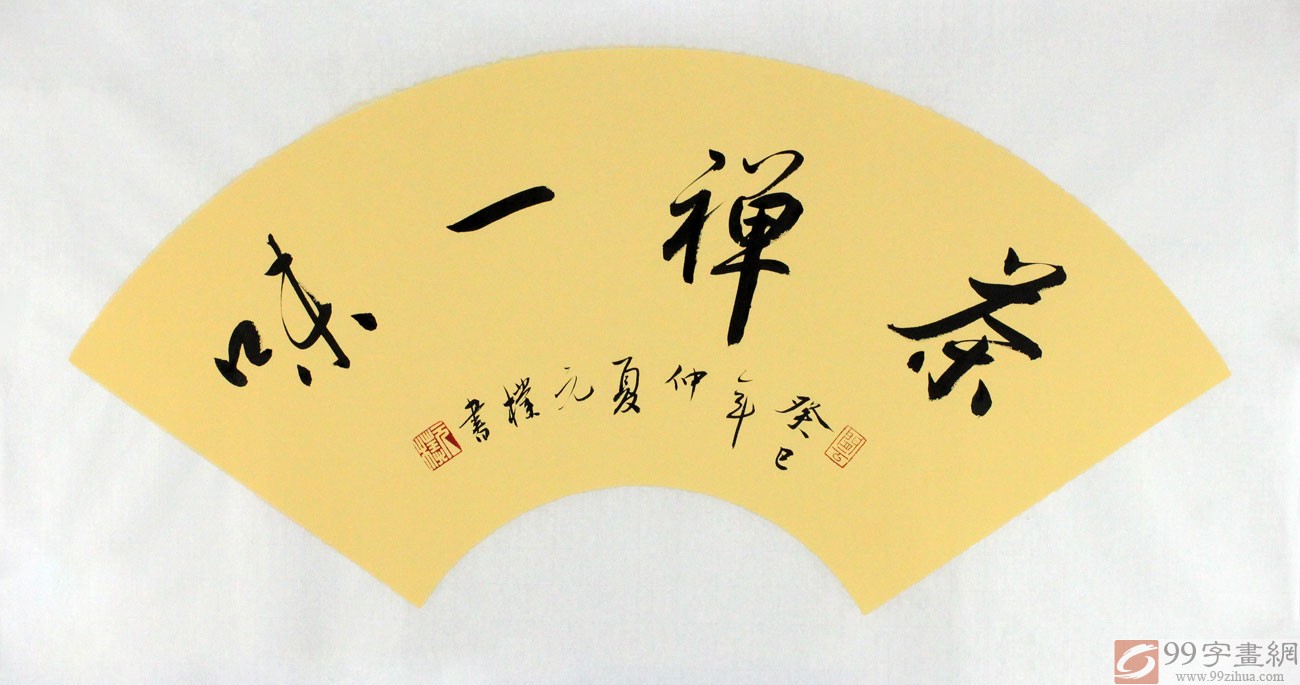 茶禅一味
癸巳年仲夏元樸書
99字畫網
www.99zihua.com